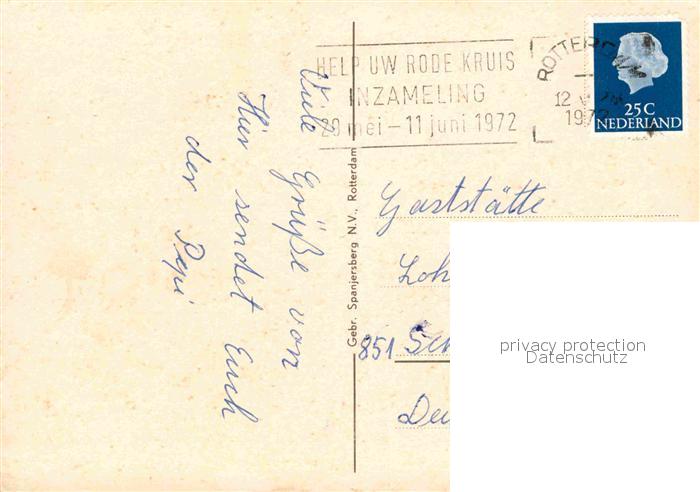 Viele Grüße von
Hier sendet Euch
der Pepi
Gebr. Spanjersberg N.V., Rotterdam
HELP UW RODE KRUIS
INZAMELING
29 mei – 11 juni 1972
ROTTERDAM
12
197
25 C
NEDERLAND
Gaststätte
Loh
851 Sch
Deu
privacy protection
Datenschutz